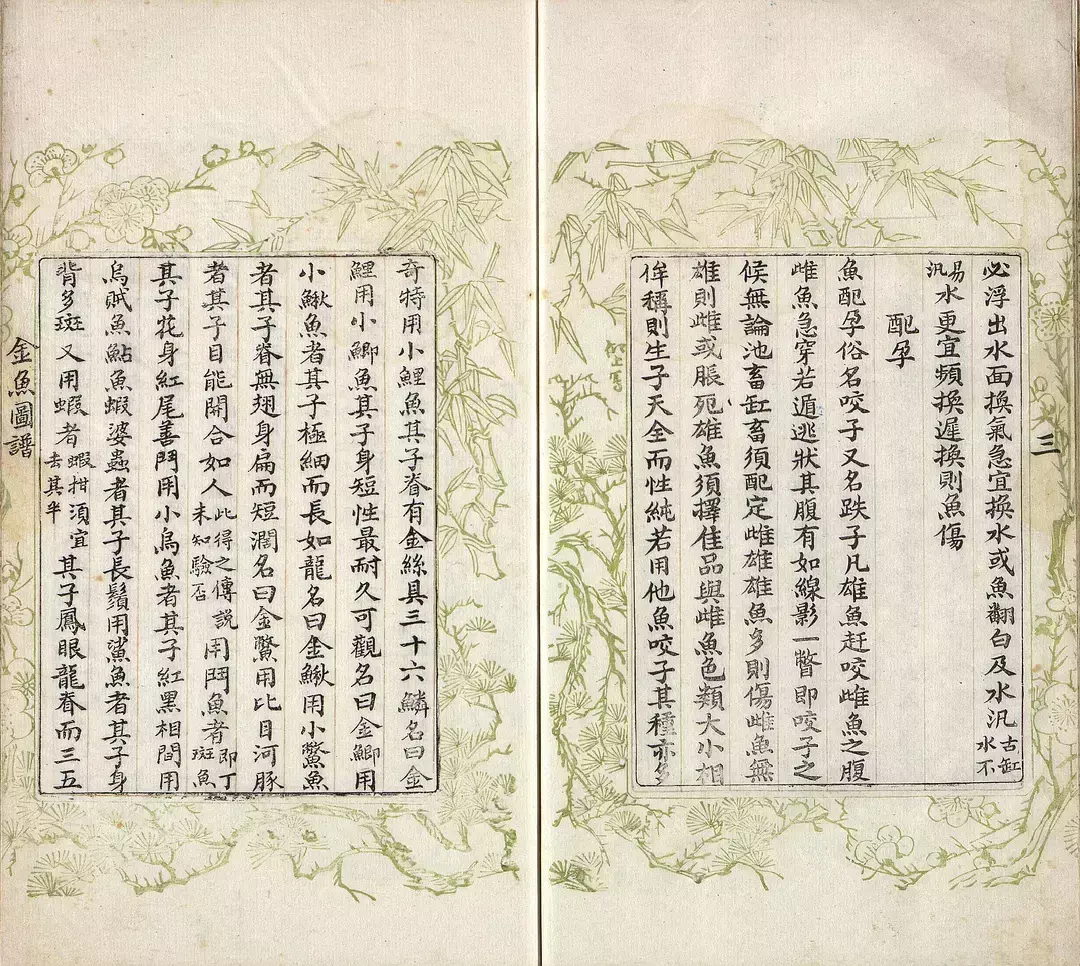 三
必浮出水面換氣急宜換水或魚翻白及水汎古缸水不
易汎水更宜頻換遲換則魚傷
配孕
魚配孕俗名咬子又名跌子凡雄魚赶咬雌魚之腹
雌魚急穿若遁逃狀其腹有如線影一瞥即咬子之
候無論池畜缸畜須配定雌雄雄魚多則傷雌魚無
雄則雌或脹死雄魚須擇佳品與雌魚色類大小相
侔稱則生子天全而性純若用他魚咬子其種亦多
奇特用小鯉魚其子脊有金絲具三十六鱗名曰金
鯉用小鯽魚其子身短性最耐久可觀名曰金鯽用
小鰍魚者其子極細而長如龍名曰金鰍用小鱉魚
者其子脊無翅身扁而短濶名曰金鱉用比目河豚
者其子目能開合如人此得之傳説未知驗否用鬥魚者即丁斑魚
其子花身紅尾善鬥用小烏魚者其子紅黑相間用
烏賊魚鮎魚蝦婆蟲者其子長鬚用鯊魚者其子身
背多斑又用蝦者蝦拑湏宜去其半其子鳳眼龍脊而三五
金魚圖譜